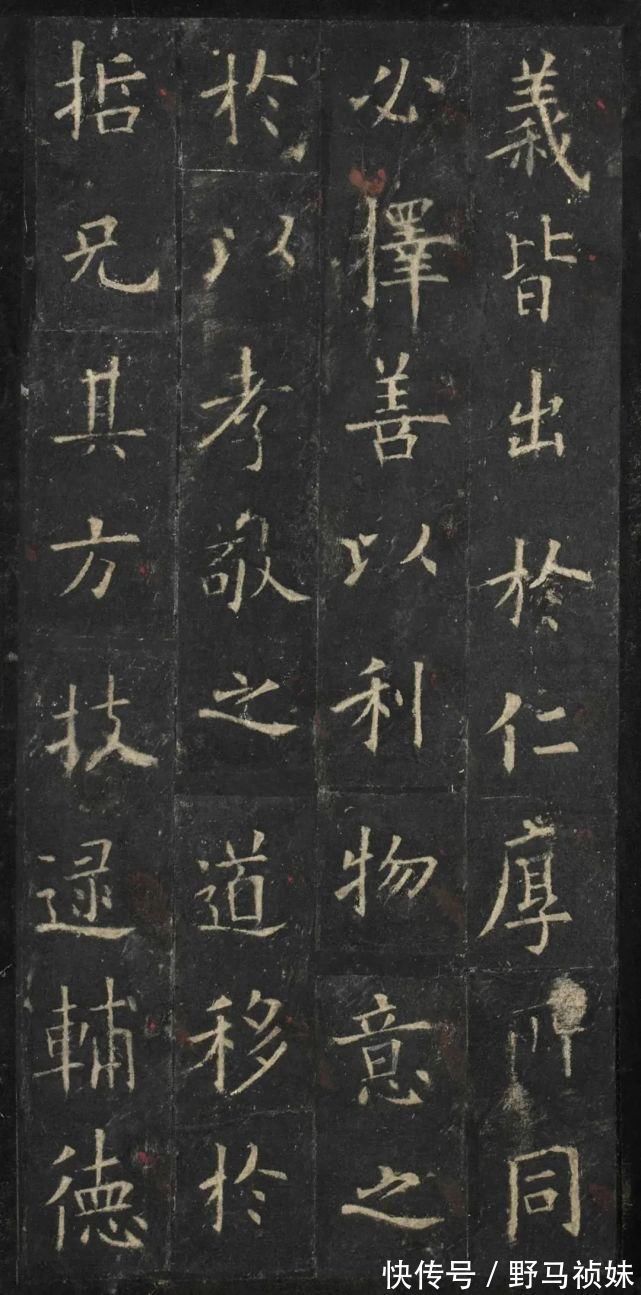 義皆出於仁厚所同
必擇善以利物意之
於以孝敬之道移於
哲兄其方技逯輔德
快传号/野马祯妹